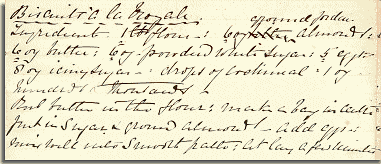 Biscuits à la Royale
ground Jordan
Ingredient. 1 lb flour : 6 oz almonds :
6 oz butter : 6 oz powdered white sugar : 5 eggs
8 oz icing sugar : drops of cochineal : 1 oz
hundreds & thousands.
Rub butter in the flour : make a bay in centre
put in sugar & ground almonds - add eggs :
mix well into smooth paste : let lay a few minutes